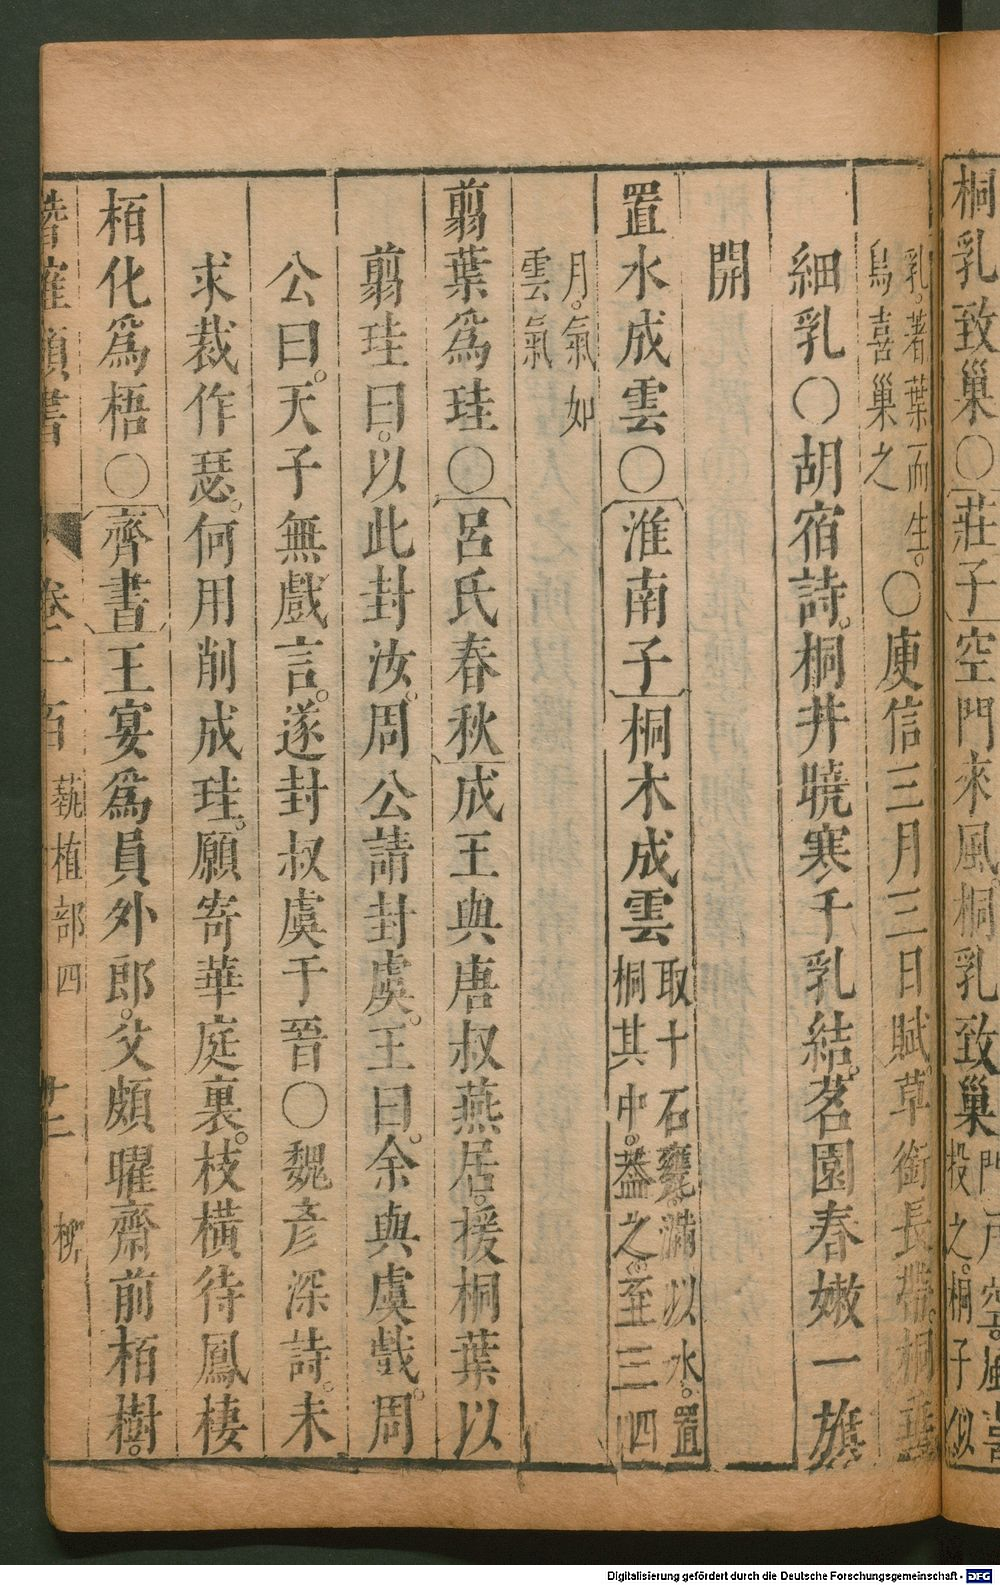 桐乳致巢○莊子空門來風桐乳致巢門戶空風喜投之桐子似
乳著葉而生鳥喜巢之○庾信三月三日賦草銜長帶桐垂
細乳○胡宿詩桐井曉寒千乳結茗園春嫩一旗
開
置水成雲○淮南子桐木成雲取十石甕滿以水置桐其中蓋之至三四
月氣如雲氣
翦葉為珪○呂氏春秋成王與唐叔燕居援桐葉以
翦珪曰以此封汝周公請封虞王曰余與虞戲周
公曰天子無戲言遂封叔虞于晉○魏彥深詩未
求裁作瑟何用削成珪願寄華庭裏枝橫待鳳棲
栢化為梧○齊書王宴為員外郎父頗曜齋前栢樹
潛確類書 卷一百 蓺植部四 十二 梛
Digitalisierung gefördert durch die Deutsche Forschungsgemeinschaft - DFG